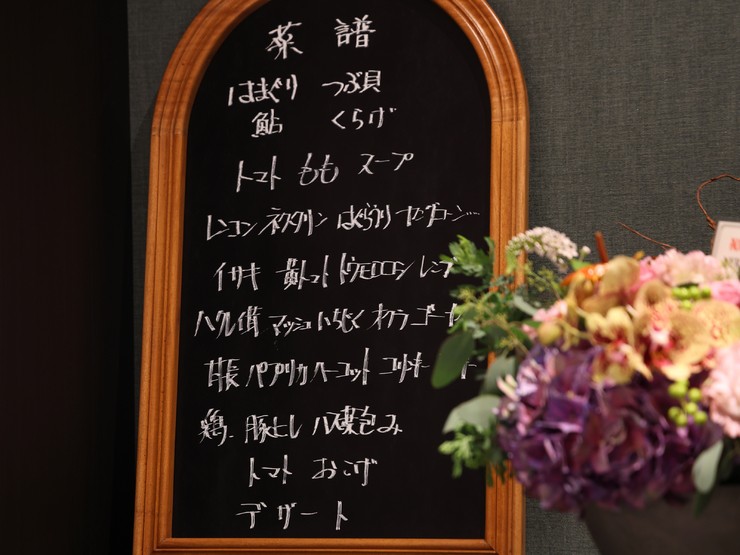 菜譜
はまぐり つぶ貝
鮎 くらげ
トマト もも スープ
レンコン ネクタリン はぐらうり ヤングコーン…
イサキ 黄トマト トウモロコシ レンブ
ハタ マッシュ いちじく オクラ ゴー
甘長 パプリカ ハーコット コリンキー
鶏 豚ヒレ 包み
トマト おこげ
デザート